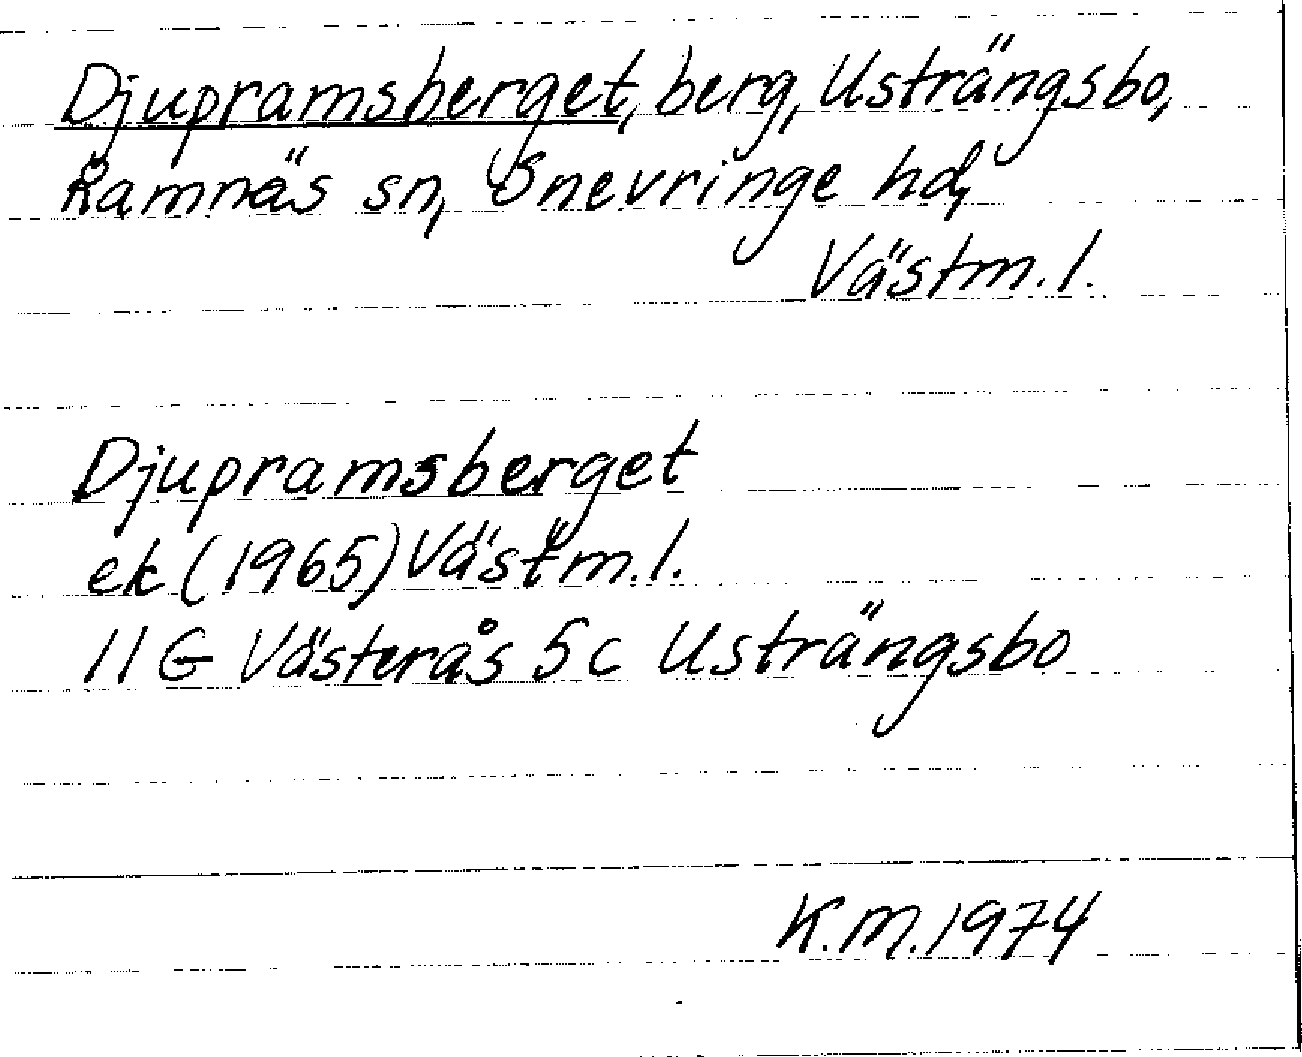 Djupramsberget, berg, Usträngsbo,
Ramnäs sn, Snevringe hd,
Västm.l.
Djupramsberget
ek (1965) Västm.l.
11 G Västerås 5c Usträngsbo
K.M.1974